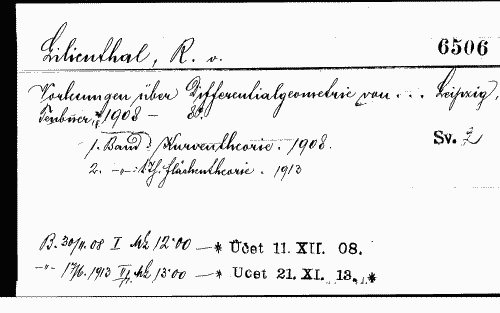 Lilienthal, R. v. 6506
Vorlesungen über Differentialgeometrie von ... Leipzig,
Teubner, 1908 – 8°
1. Band: Kurventheorie. 1908. Sv. 2
2. –„– : Flächentheorie. 1913
B. 30/11.08 I Mk 12·00 —* Účet 11. XII. 08.
–„– 17/6.1913 Mk 13·00 —* Účet 21. XI. 13. *